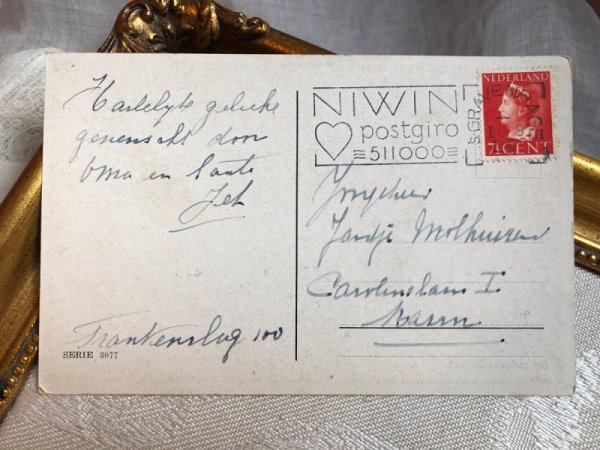 Hartelijke geluke
gewenscht door
Oma en tante
Jet
Frankenslag 100
SERIE 3077
NIWIN
postgiro
511000
'S GRAVENHAGE
NEDERLAND
7½ CENT
Jongeheer
Jantje Molhuizen
Carolinelaan I